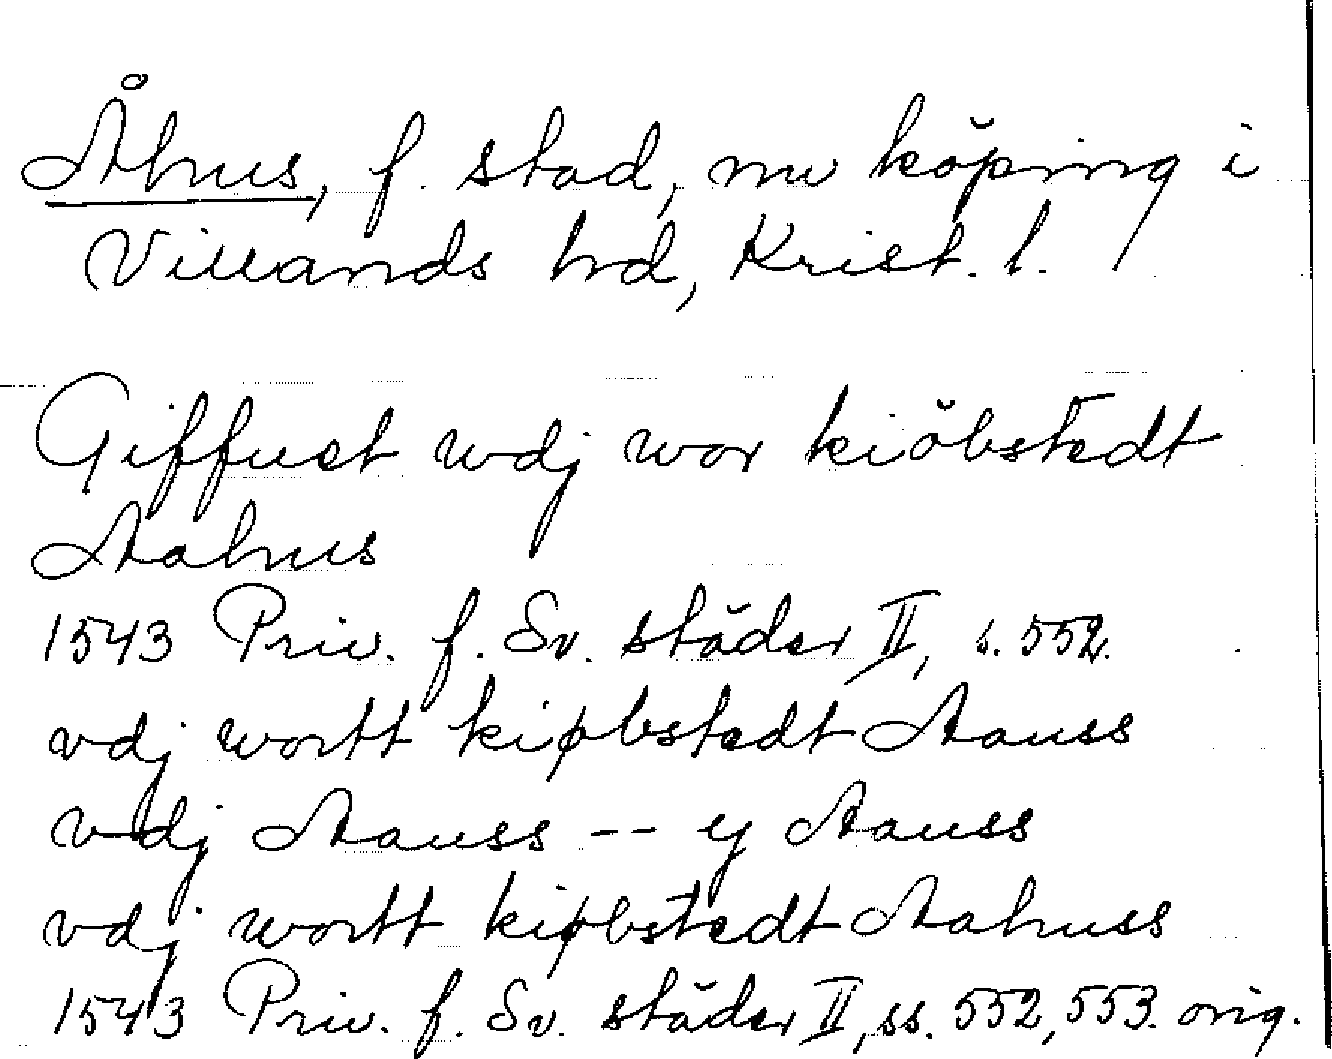 Åhus, f. stad, nu köping i
Villands hd, Krist. l.
Giffuet wdj wor kiöbstedt
Aahus
1543 Priv. f. Sv. städer II, s. 552.
vdj wortt kiøbstedt Aauss
vdj Aauss -- ij Aauss
vdj wortt kiøbstedt Aahuss
1543 Priv. f. Sv. städer II, ss. 552, 553. orig.